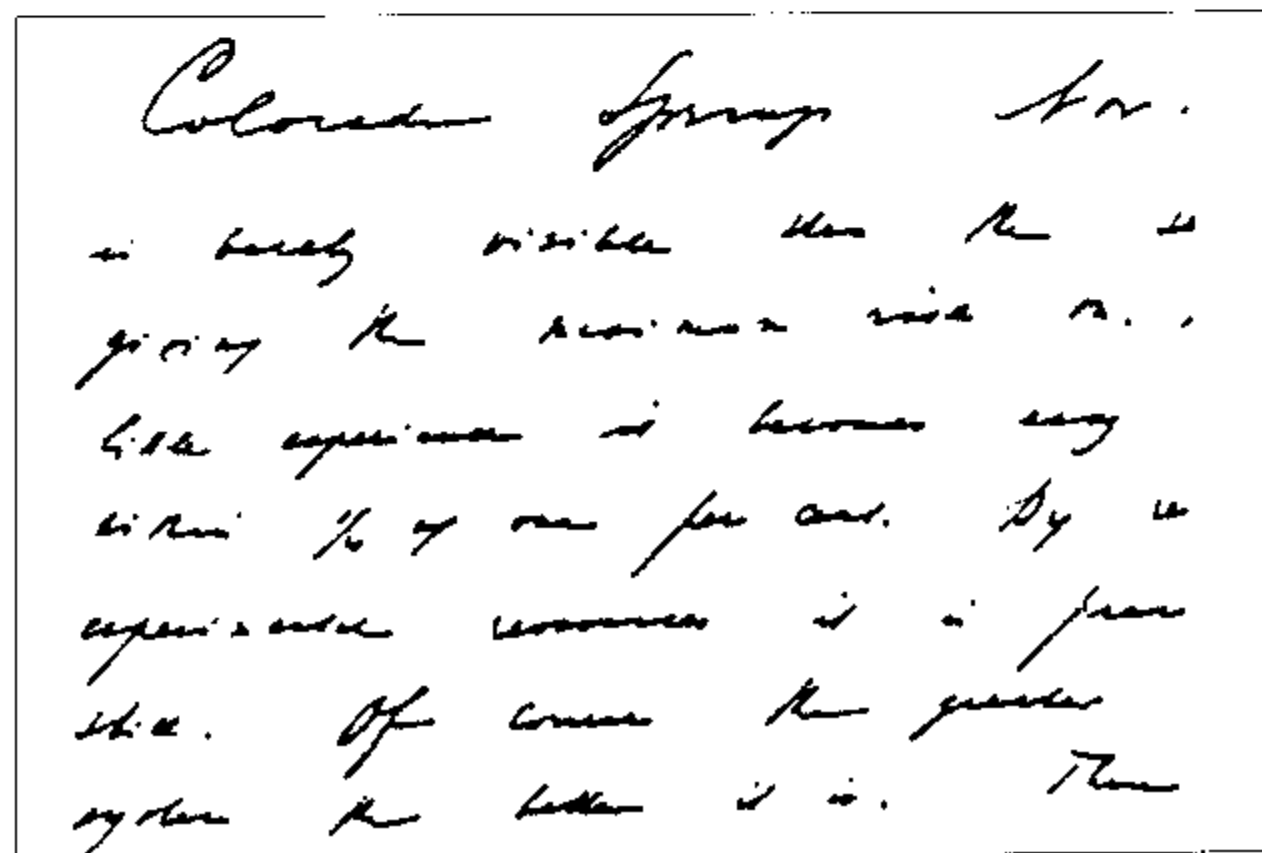 Colorado Springs Nov.
is barely visible then the
giving the maximum rise
little experience it becomes easy
within 1/6 of one per cent. By
experimental resources it is
still. Of course the greater
system the better it is. There